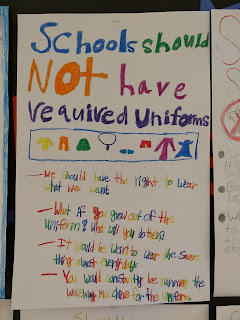 Schools should
NOT have
required Uniforms
- We should have the right to wear
what we want.
- What if you grow out of the
uniform? what will you do then?
- It would be
thing almost everyday.
- You would constantly be running the
washing machine for the uniform.